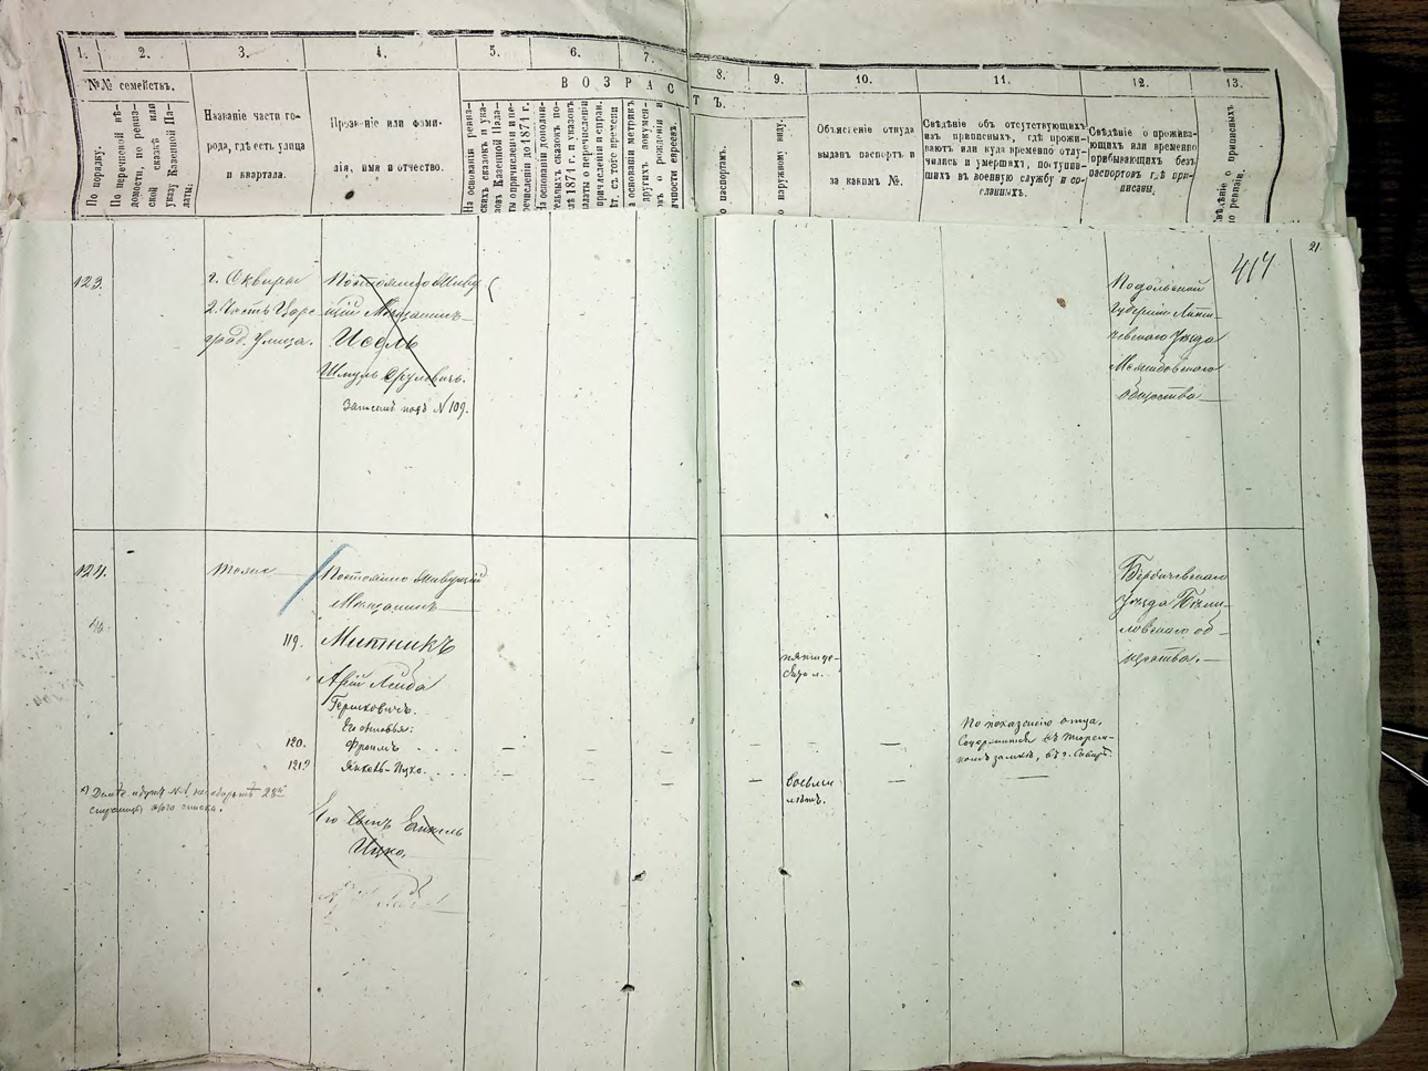 1.
2.
3.
4.
5.
6.
7.
8.
9.
10.
11.
12.
13.
№№ семействъ.
По порядку.
По перечневой вѣ-
домости, по ревиз-
ской сказкѣ или
указу Казенной Па-
латы:
Названіе части го-
рода, гдѣ есть улица
и квартала.
Прозваніе или фами-
лія, имя и отчество.
ВОЗРАСТЪ.
На основаніи ревиз-
скихъ сказокъ и ука-
зовъ Казенной Пала-
ты о причисленіи и пе-
речисленіи до 1871 г.
На основаніи дополни-
тельныхъ сказокъ по-
слѣ 1871 г. и указовъ
палаты о перечисленіи
причисленіи и справ.
лѣт. съ того времени.
а основаніи метрикъ
другихъ докумен-
омъ о рожденіи и
ичности евреевъ.
о паспортамъ.
о наружному виду.
Объясненіе откуда
выданъ паспортъ и
за какимъ №.
Свѣдѣніе объ отсутствующихъ
изъ приписныхъ, гдѣ прожи-
ваютъ или куда временно отлу-
чились и умершихъ, поступив-
шихъ въ военную службу и со-
сланныхъ.
Свѣдѣніе о прожива-
ющихъ или временно
прибывающихъ безъ
паспортовъ гдѣ при-
писаны.
вѣдѣніе о приписныхъ
по ревизіи.
21
417
123.
г. Сквира
2. Часть Царе-
град. Улица.
Постоянно Живу-
щій Мещанинъ
Исель
Шмуль Сруловичъ.
Записанъ подъ № 109.
Подольской
Губерніи Лити-
чевскаго Уезда
Межибовскаго
общества
124.
тоже
Постоянно Живущій
Мещанинъ
119.
Митникъ
Арій Лейба
Гершковичъ.
Его сыновья:
120.
Фроимъ
121
Янкель-Ицко.
Его сынъ Янкель
Ицко.
пятиде-
сяти л.
восьми
лѣтъ.
По показанію отца,
содержится въ тюрем-
номъ замкѣ, въ г. Сквирѣ.
Бердичевскаго
Уезда Бѣли-
ловскаго об-
щества.